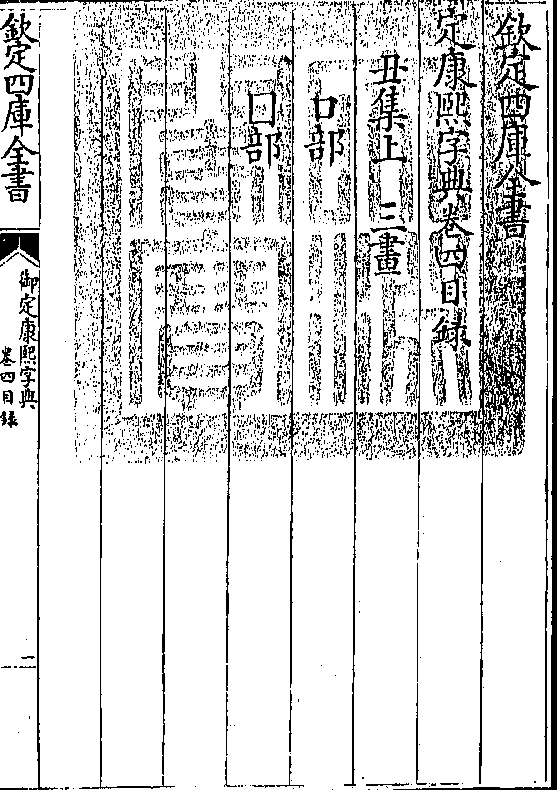 欽定四庫全書
定康熙字典卷四目録
丑集上 三畫
口部
囗部
欽定四庫全書
御定康熙字典
卷四目録
一